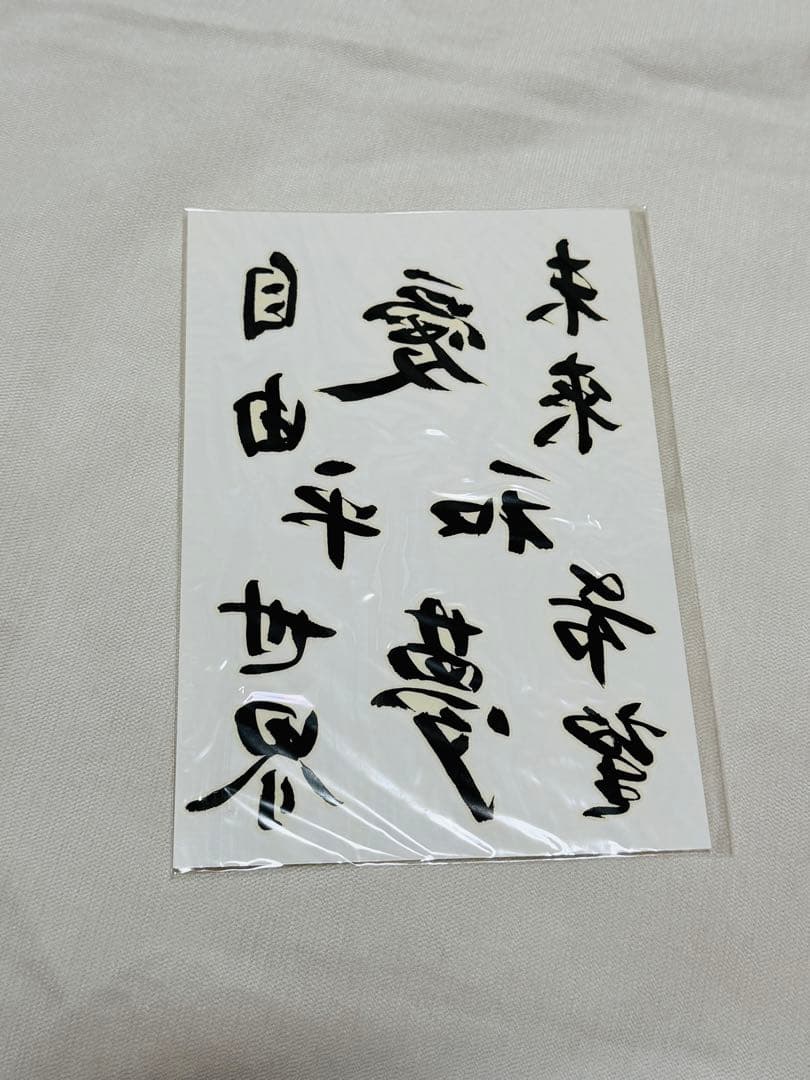 自由
愛
未来
平和
世界
夢
希望